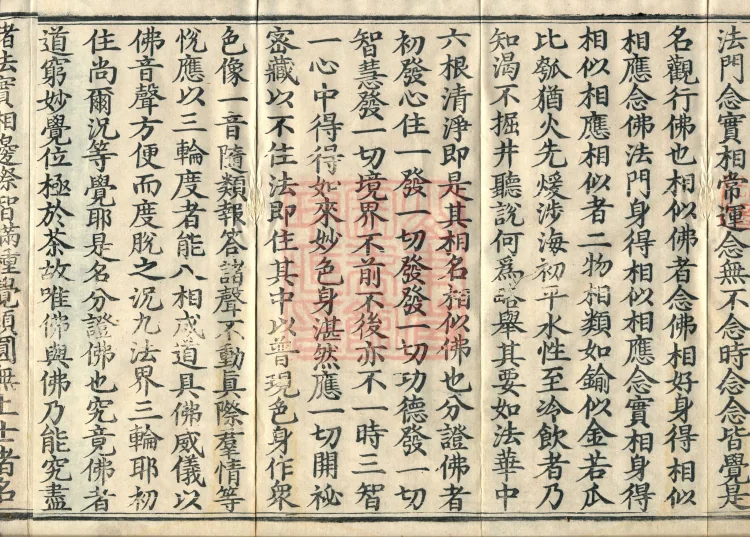 法門念實相常運念無不念時念念皆覺是
名觀行佛也相似佛者念佛相好身得相似
相應念佛法門身得相似相應念實相身得
相似相應相似者二物相類如鍮似金若瓜
比瓠猶火先煖涉海初平水性至冷飲者乃
知渴不掘井聽說何爲略舉其要如法華中
六根清淨即是其相名相似佛也分證佛者
初發心住一發一切發發一切功德發一切
智慧發一切境界不前不後亦不一時三智
一心中得得如來妙色身湛然應一切開祕
密藏以不住法即住其中以普現色身作衆
色像一音隨類報答諸聲不動眞際羣情等
悅應以三輪度者能八相成道具佛威儀以
佛音聲方便而度脫之況九法界三輪耶初
住尚爾況等覺耶是名分證佛也究竟佛者
道窮妙覺位極於茶故唯佛與佛乃能究盡
諸法實相邊際智滿種覺頓圓無上士者名